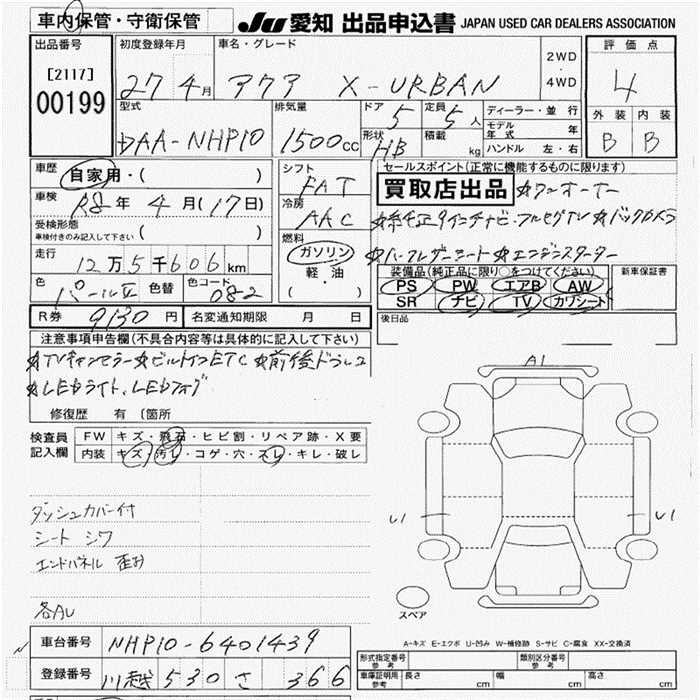 車内保管・守衛保管 JU 愛知 出品申込書 JAPAN USED CAR DEALERS ASSOCIATION
出品番号 初度登録年月 車名・グレード 2WD・4WD 評価点
[2117] 00199 27年4月 アクア X-URBAN 4
型式 排気量 ドア 定員 ディーラー・並行 外装 内装
DAA-NHP10 1500cc 5 5人 モデル年式 年 B B
形状 積載 HB kg ハンドル 左・右
車歴 自家用・( ) シフト FAT セールスポイント(正常に機能するものに限ります)
買取店出品 ☆ワンオーナー
車検 R8年4月(17日) 冷房 AAC ☆純正9インチナビ・フルセグTV☆バックカメラ
受検形態 車検付きのみ記入して下さい ( ) 燃料 ☆ハーフレザーシート☆エンジンスターター
走行 12万5千606km ガソリン・軽・油 ( )
装備品(純正品に限り○をつけてください) 新車保証書
PS PW エアB AW
色 パールII 色替 色コード 082 SR ナビ TV カワシート
R券 9130円 名変通知期限 月 日 後日品
注意事項申告欄(不具合内容等は具体的に記入して下さい)
☆TVキャンセラー☆ビルトインETC☆前後ドラレコ
☆LEDライト、LEDフォグ
修復歴 有 〔箇所
検査員記入欄 FW キズ・飛石・ヒビ割・リペア跡・X要
内装 キズ・汚レ・コゲ・穴・スレ・キレ・破レ
A1
U1 U1
ダッシュカバー付
シート シワ
エンドパネル 歪み
各AU
スペア
A-キズ E-エクボ U-凹み W-補修跡 S-サビ C-腐食 XX-交換済
車台番号 NHP10-6401439
登録番号 川越 530 さ 366
形式指定番号 参考 類別区分番号 参考
車庫証明用 参考 長さ cm 幅 cm 高さ cm